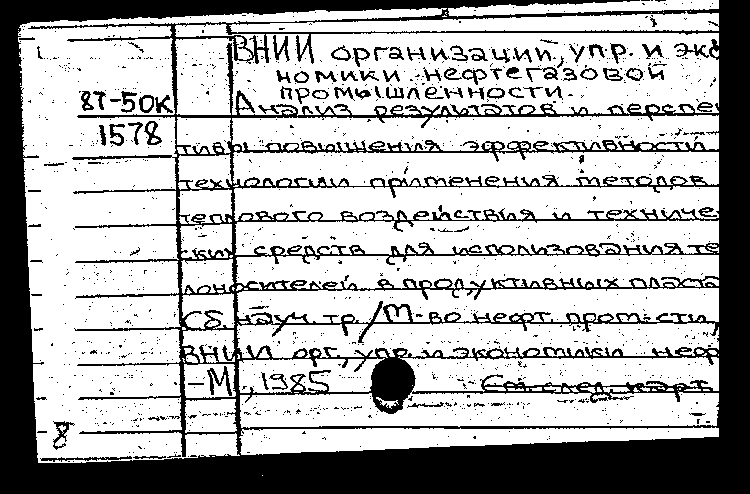 ВНИИ организации, упр. и эко
номики нефтегазовой
промышленности.
87-50К
Анализ результатов и перспек
1578
тивы повышения эффективности
технологии применения методов
теплового воздействия и техниче-
ских средств для использования те
лоносителей в продуктивных пласта
Сб. науч. тр. / М-во нефт. пром-сти,
ВНИИ орг., упр. и экономики неф
-М., 1985
См. след. карт.
8